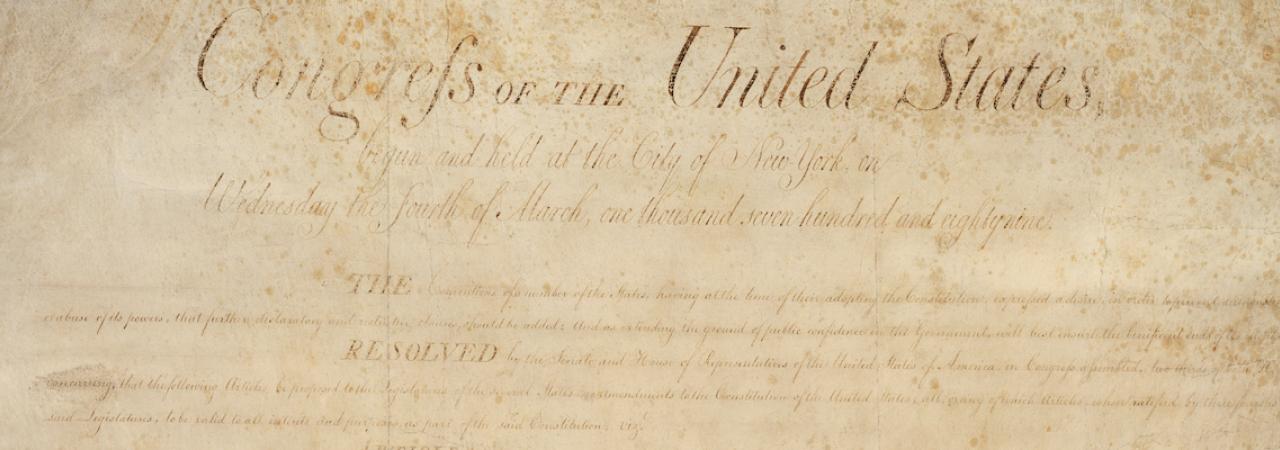 Congreſs OF THE United States,
begun and held at the City of New-York, on
Wednesday the fourth of March, one thousand seven hundred and eighty nine.
THE Conventions of a number of the States, having at the time of their adopting the Constitution, expreſsed a desire, in order to prevent
or abuse of its powers, that further declaratory and restrictive clauses should be added: And as extending the ground of public confidence in the Government, will best ensure the beneficent ends of
RESOLVED by the Senate and House of Representatives of the United States of America, in Congreſs aſsembled, two thirds of both
concurring, that the following Articles be proposed to the Legislatures of the several States, as amendments to the Constitution of the United States, all, or any of which Articles, when ratified by three fourths
said Legislatures, to be valid to all intents and purposes, as part of the said Constitution; viz.